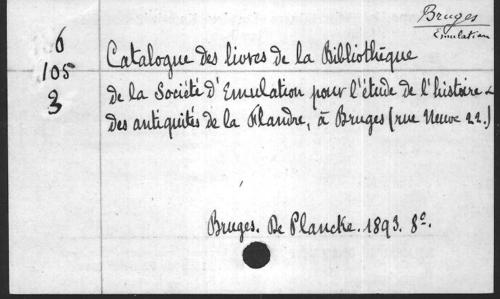 Bruges
Emulation
6
105
3
Catalogue des livres de la Bibliothèque
de la Société d'Emulation pour l'étude de l'histoire &
des antiquités de la Flandre, à Bruges (rue Neuve 22.)
Bruges. De Plancke. 1893. 8º.